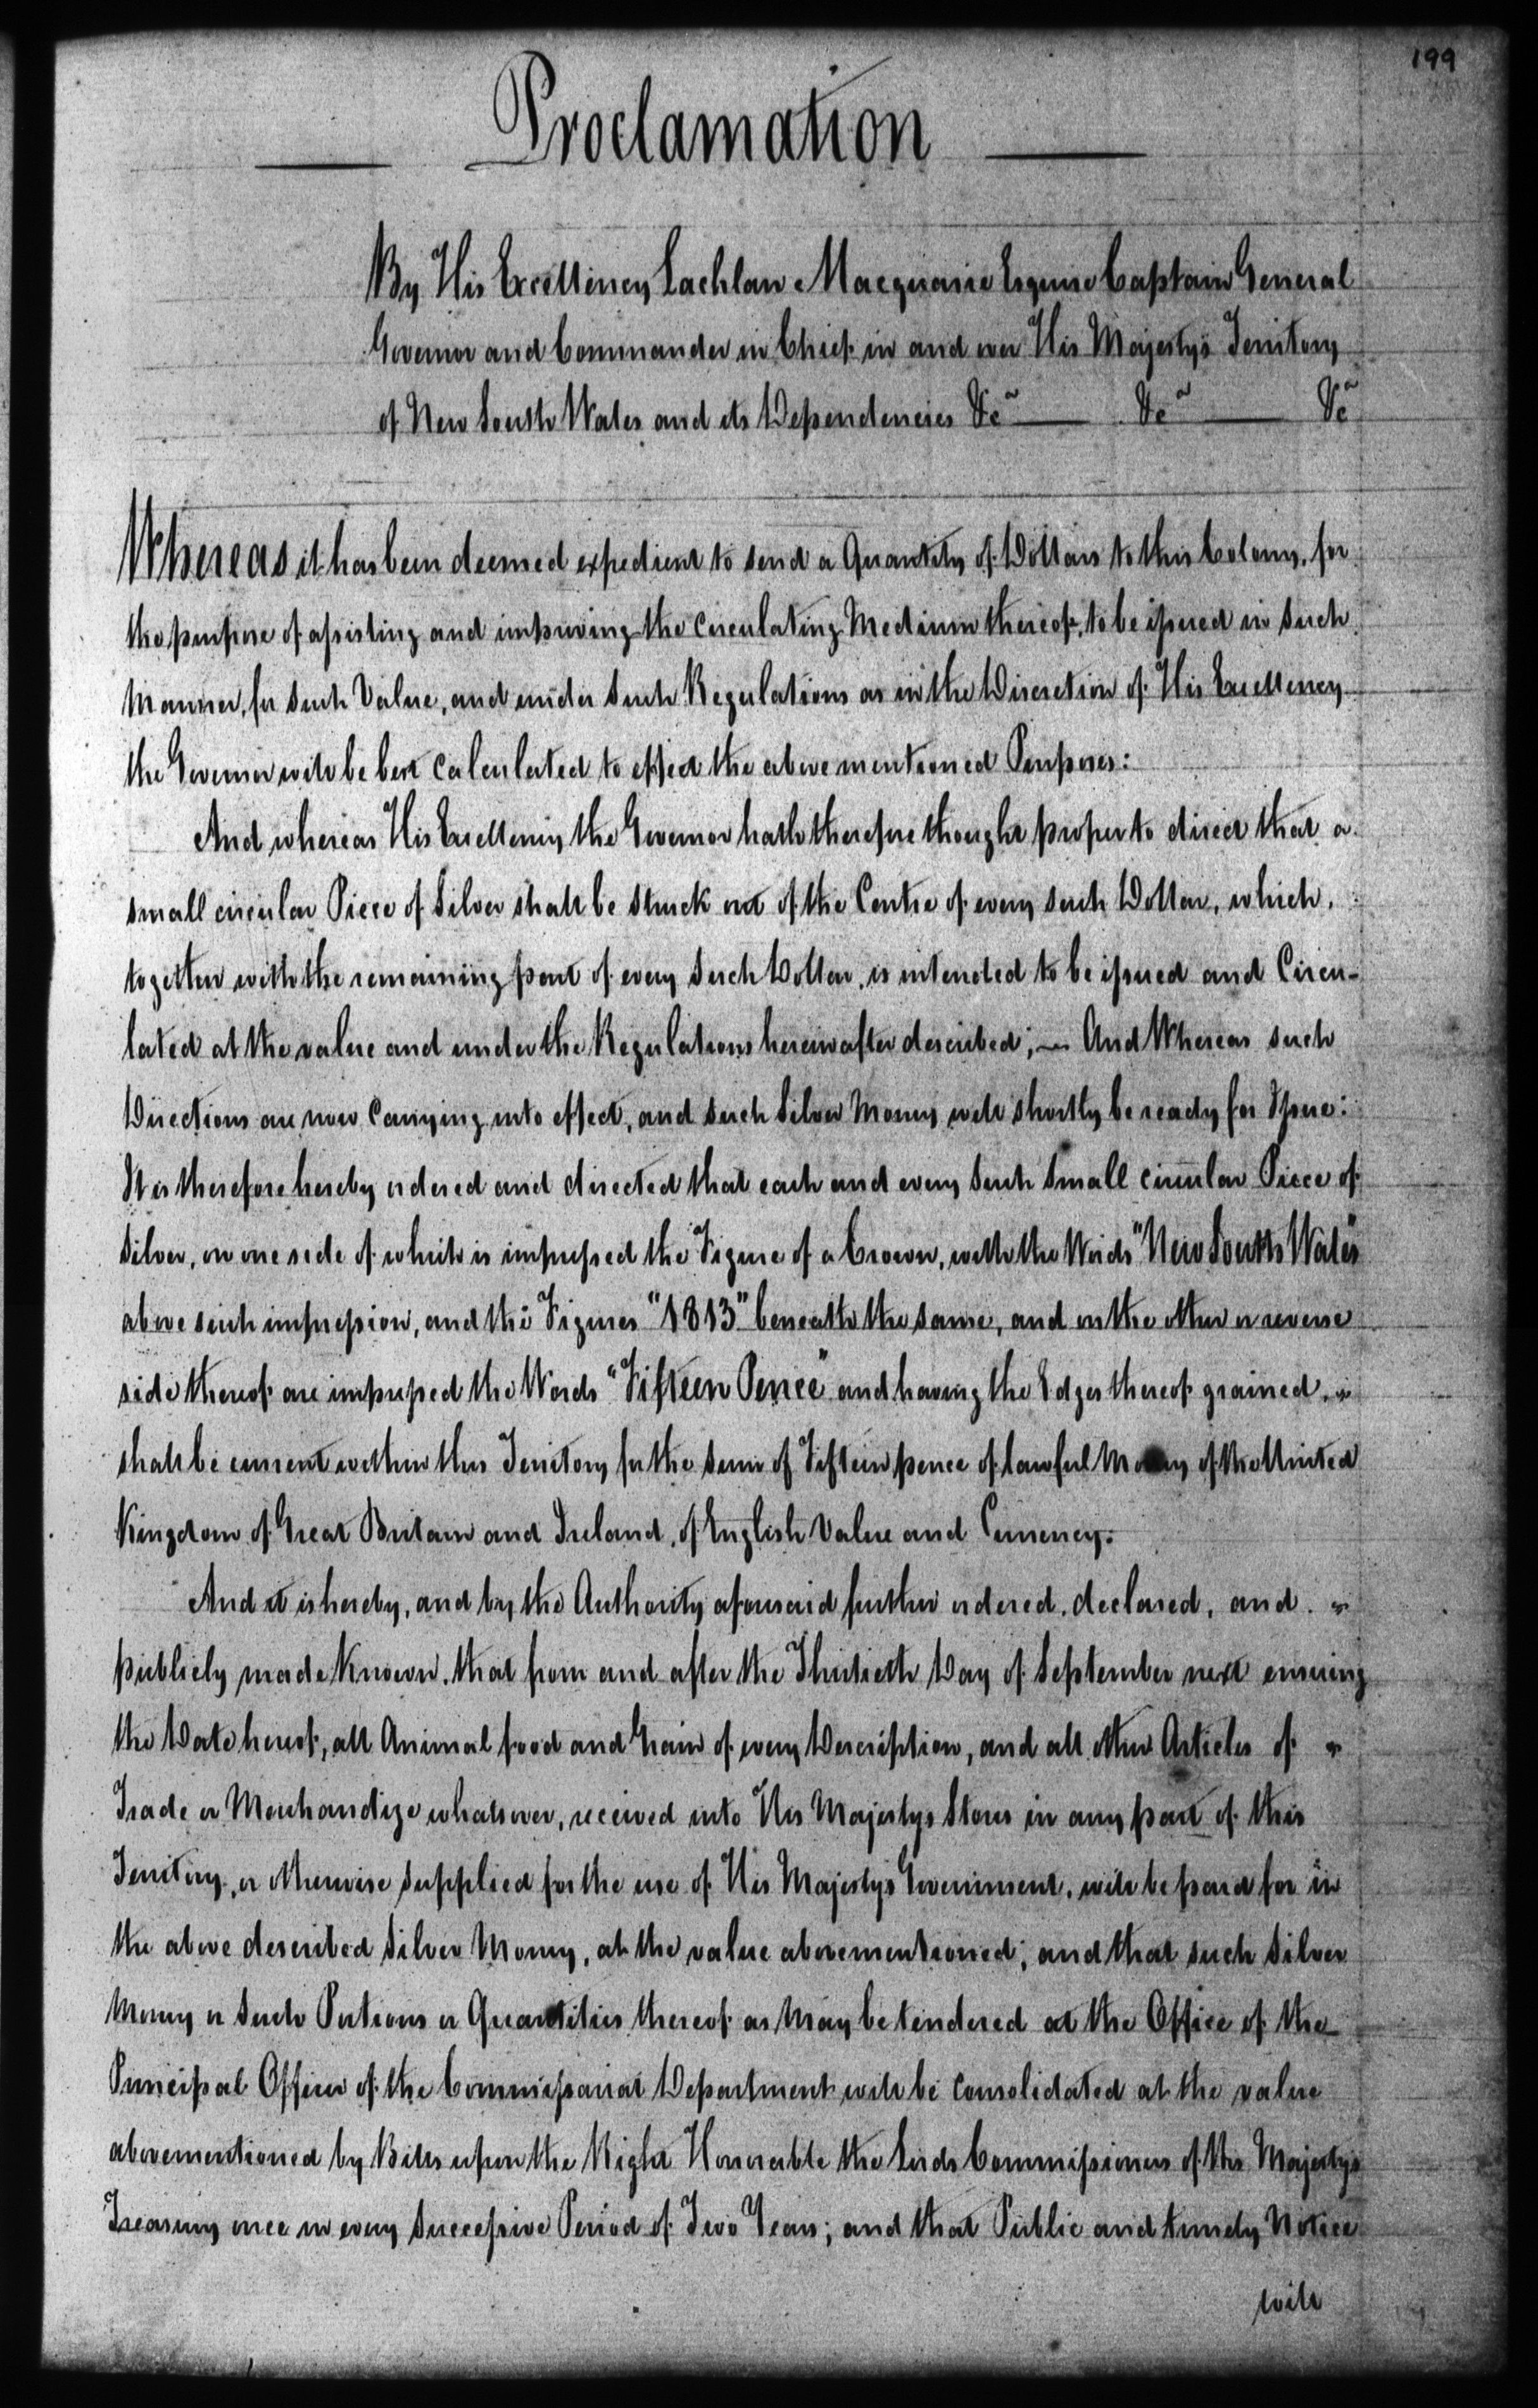 199
Proclamation
By His Excellency Lachlan Macquarie Esquire Captain General
Governor and Commander in Chief in and over His Majesty's Territory
of New South Wales and its Dependencies &c &c &c
Whereas it has been deemed expedient to send a Quantity of Dollars to this Colony, for
the purpose of assisting and improving the circulating Medium thereof, to be issued in such
Manner, for such Value, and under such Regulations as in the Discretion of His Excellency
the Governor will be best calculated to effect the above mentioned Purposes:
And whereas His Excellency the Governor hath therefore thought proper to direct that a
small circular Piece of Silver shall be struck out of the Centre of every such Dollar, which,
together with the remaining part of every such Dollar, is intended to be issued and Circu-
lated at the value and under the Regulations hereinafter described; — And Whereas such
Directions are now carrying into effect, and such Silver Money will shortly be ready for Issue:
It is therefore hereby ordered and directed that each and every such small circular Piece of
Silver, on one side of which is impressed the Figure of a Crown, with the Words "New South Wales"
above such impression, and the Figures "1813" beneath the same, and on the other or reverse
side thereof are impressed the Words "Fifteen Pence" and having the Edges thereof grained,
shall be current within this Territory for the sum of Fifteen pence of lawful Money of the United
Kingdom of Great Britain and Ireland, of English Value and Currency:
And it is hereby, and by the Authority aforesaid further ordered, declared, and
publicly made Known, that from and after the Thirtieth Day of September next ensuing
the Date hereof, all Animal food and Grain of every Description, and all other Articles of
Trade or Merchandize whatsover, received into His Majestys Stores in any part of this
Territory, or otherwise supplied for the use of His Majestys Government, will be paid for in
the above described Silver Money, at the value abovementioned; and that such Silver
Money or such Portions or Quantities thereof as May be tendered at the Office of the
Principal Officer of the Commissariat Department will be consolidated at the value
abovementioned by Bills upon the Right Honorable the Lords Commissioners of His Majestys
Treasury once in every successive Period of Two Years; and that Public and timely Notice
will